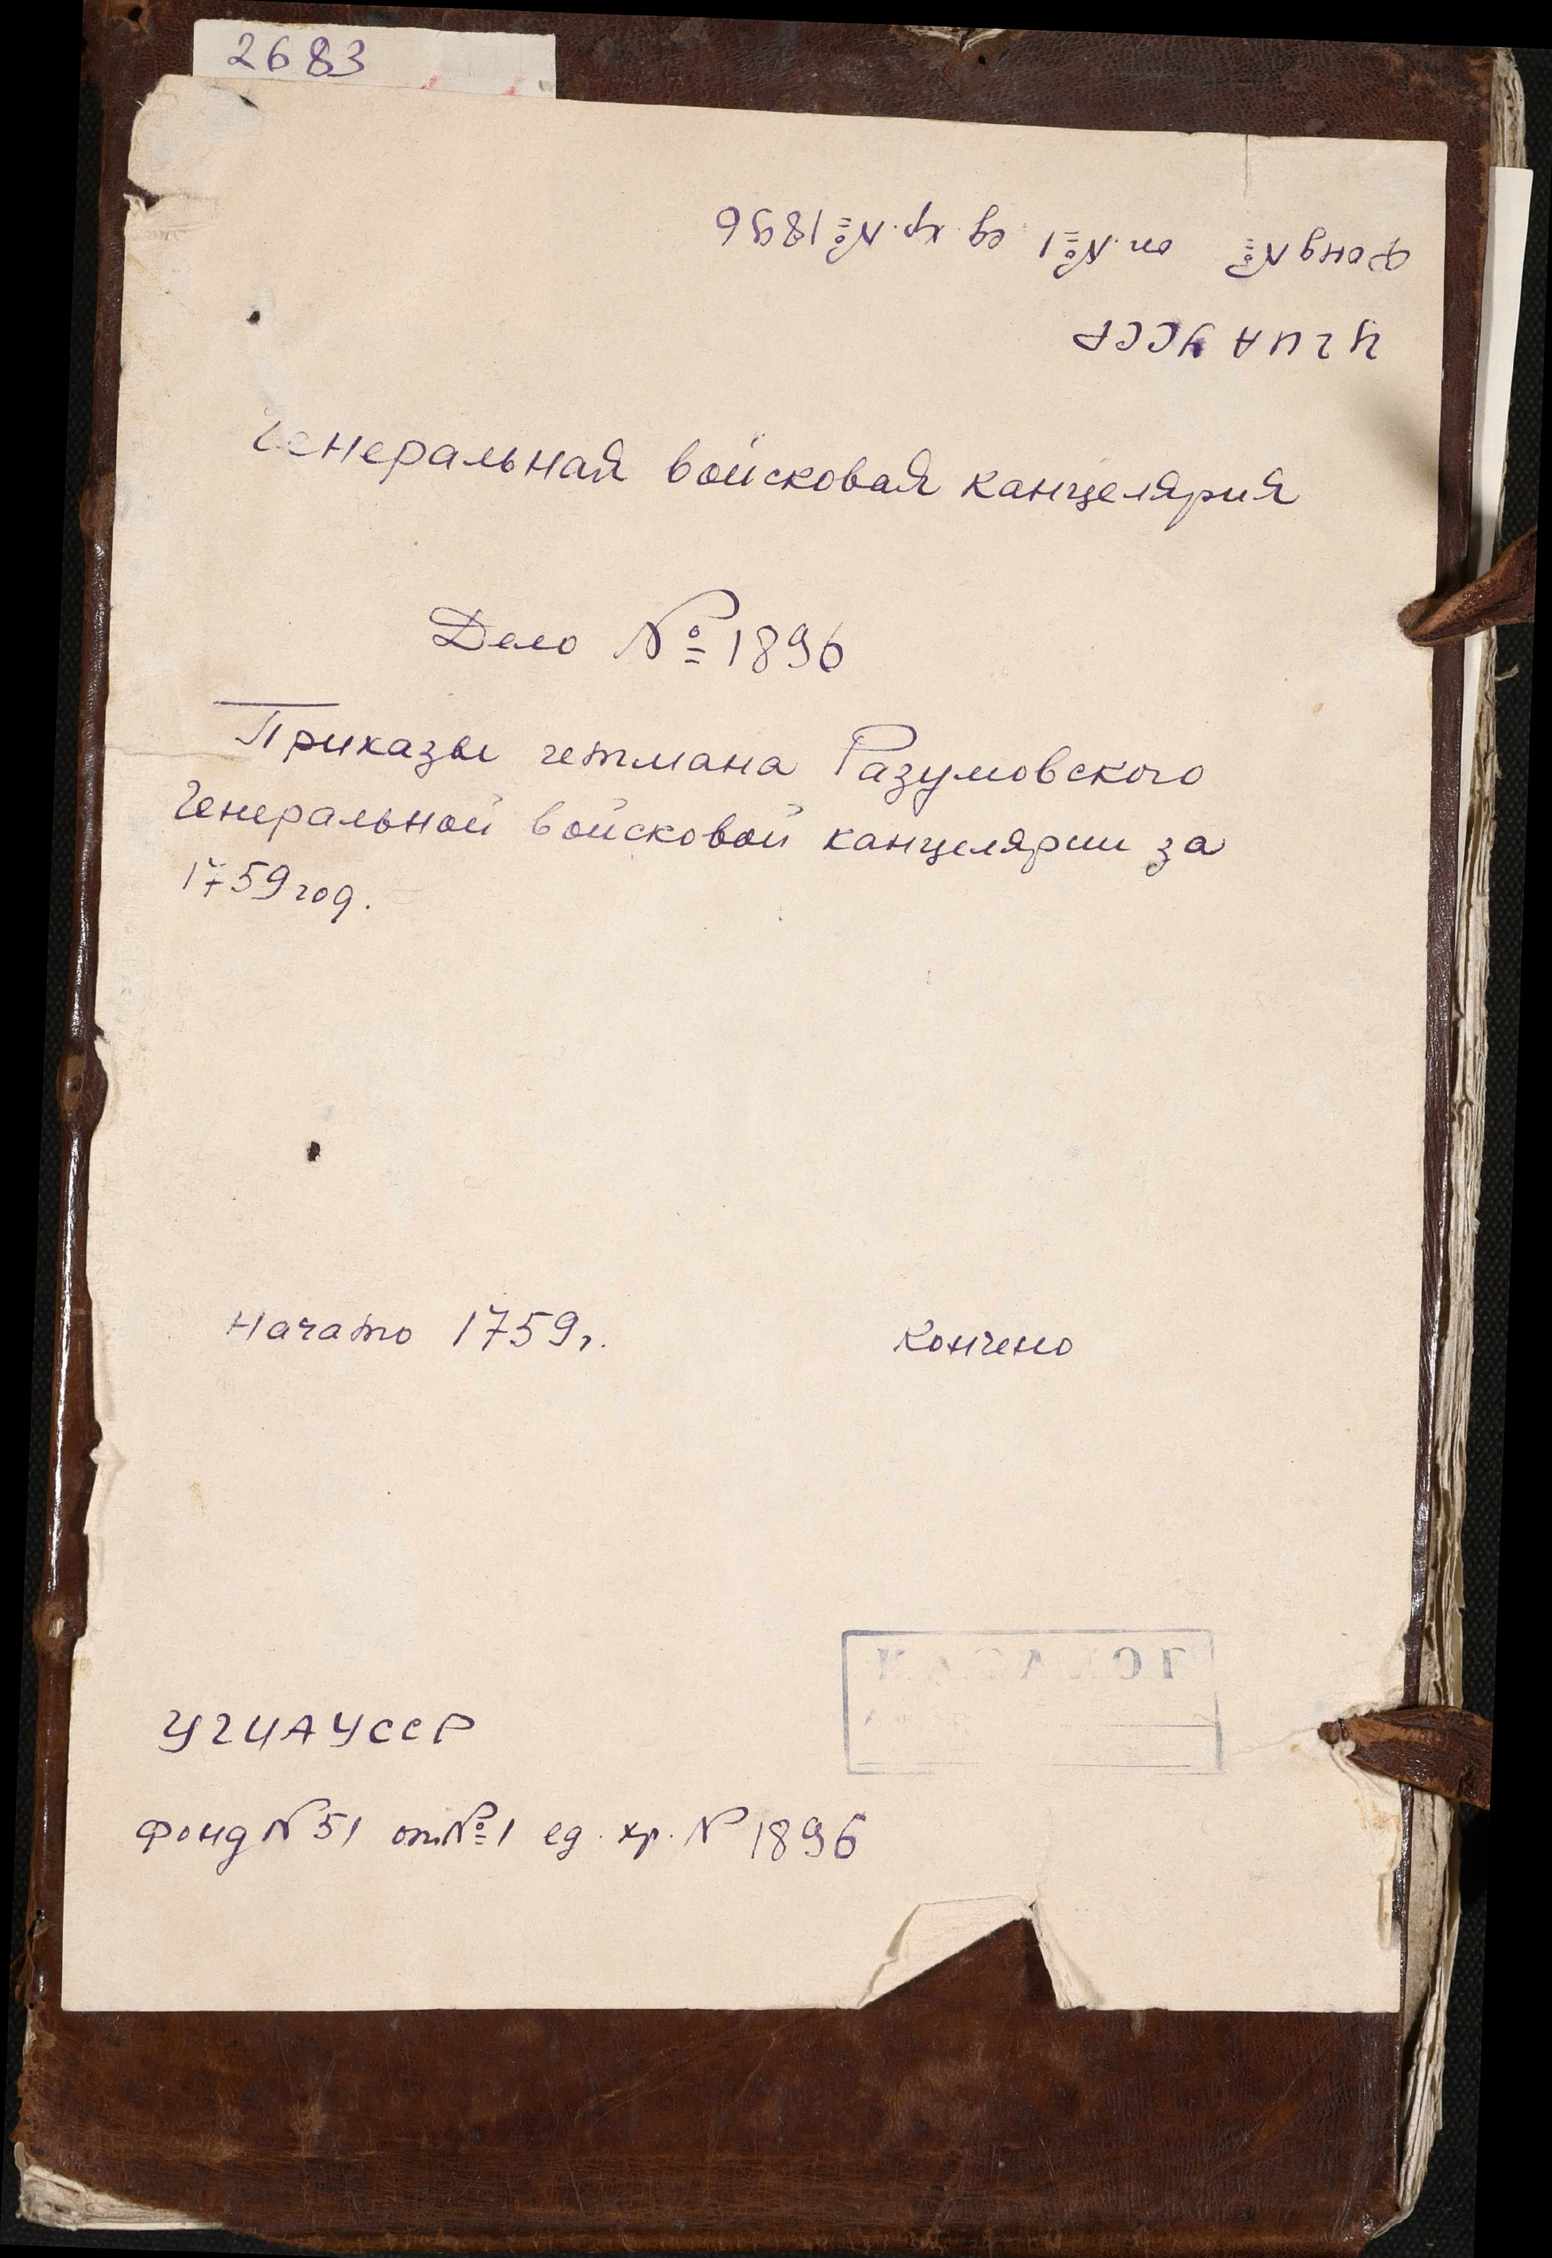 2683
Фонд № оп. №1 ед. хр. №1896
ЦГИА УССР
Генеральная войсковая канцелярия
Дело № 1896
Приказы гетмана Разумовского
Генеральной войсковой канцелярии за
1759 год.
Начато 1759 г. Кончено
ЦГИА УССР
Фонд № 51 оп. №1 ед. хр. № 1896